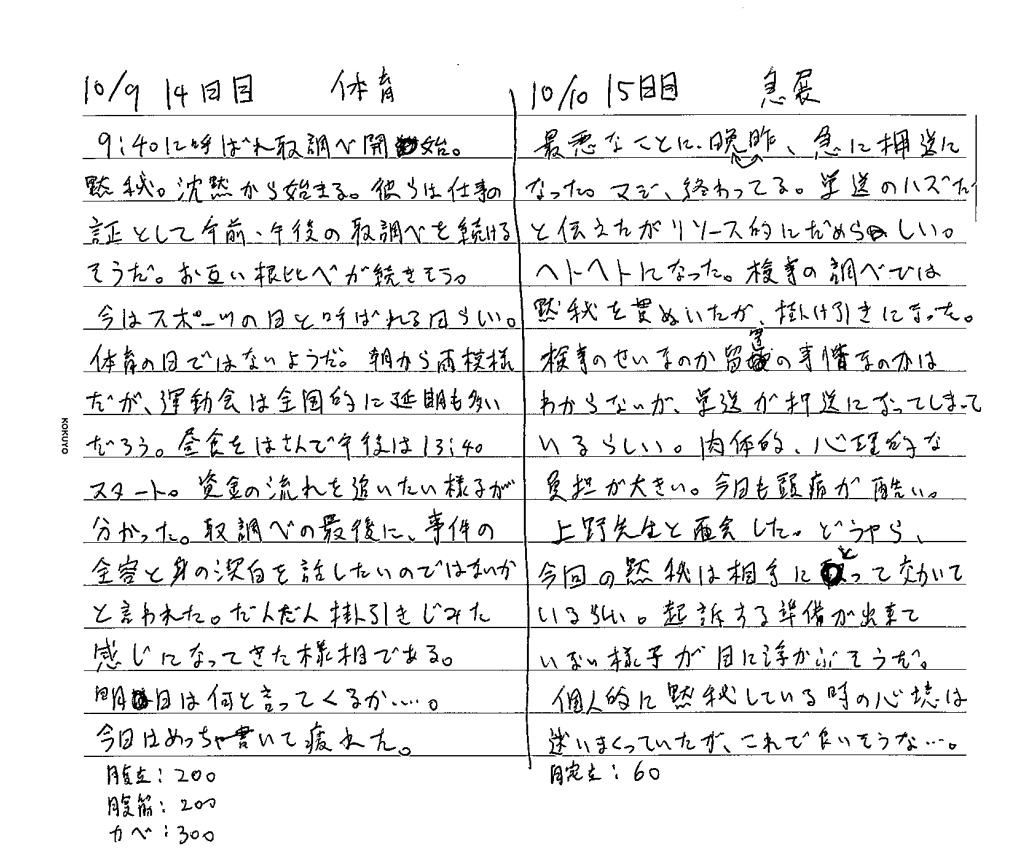 10/9 14日目 体育
9:40に呼ばれ取調べ開始。
黙秘。沈黙から始まる。彼らは仕事の
証として午前・午後の取調べを続ける
そうだ。お互い根比べが続きそう。
今はスポーツの日と呼ばれる日らしい。
体育の日ではないようだ。朝から雨模様
だが、運動会は全国的に延期も多い
だろう。昼食をはさんで午後は13:40
スタート。資金の流れを追いたい様子が
分かった。取調べの最後に、事件の
全容と身の潔白を話したいのではないか
と言われた。だんだん掛引きじみた
感じになってきた様相である。
明日は何と言ってくるか….。
今日はめっちゃ書いて疲れた。
腹立:200
腹筋:200
カベ:300
10/10 15日目 急展
最悪なことに、晩昨、急に押送に
なった。マジ、終わってる。単送のハズだ
と伝えたがリソース的にだめらしい。
ヘトヘトになった。検事の調べでは
黙秘を貫ぬいたが、掛け引きになった。
検事のせいなのか留置の事情なのかは
わからないが、単送が押送になってしまって
いるらしい。肉体的、心理的な
負担が大きい。今日も頭痛が酷い。
上野先生と面会した。どうやら、
今回の黙秘は相手にとって効いて
いるらしい。起訴する準備が出来て
いない様子が目に浮かぶそうだ。
個人的に黙秘している時の心境は
迷いまくっていたが、これで良いそうな…。
腕立:60
KOKUYO